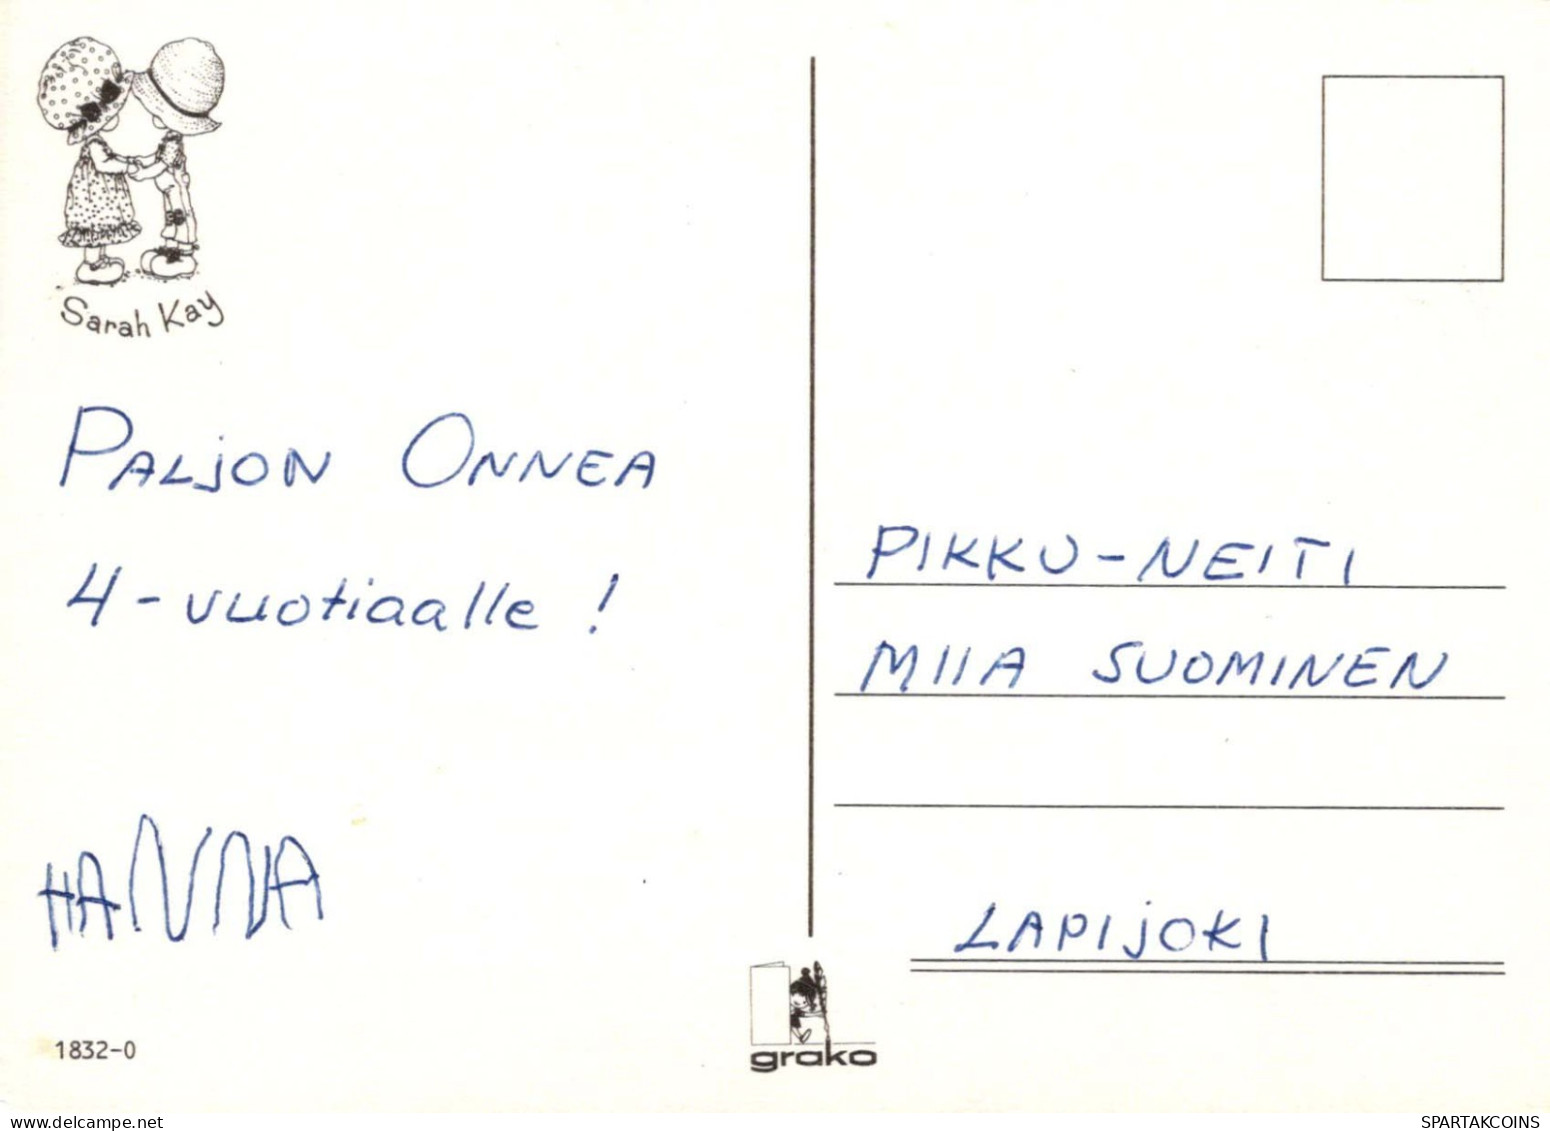 Sarah Kay
PALJON ONNEA
4-vuotiaalle !
HANNA
1832-0
PIKKU-NEITI
MIIA SUOMINEN
LAPIJOKI
grako
delcampe.net
SPARTAKCOINS